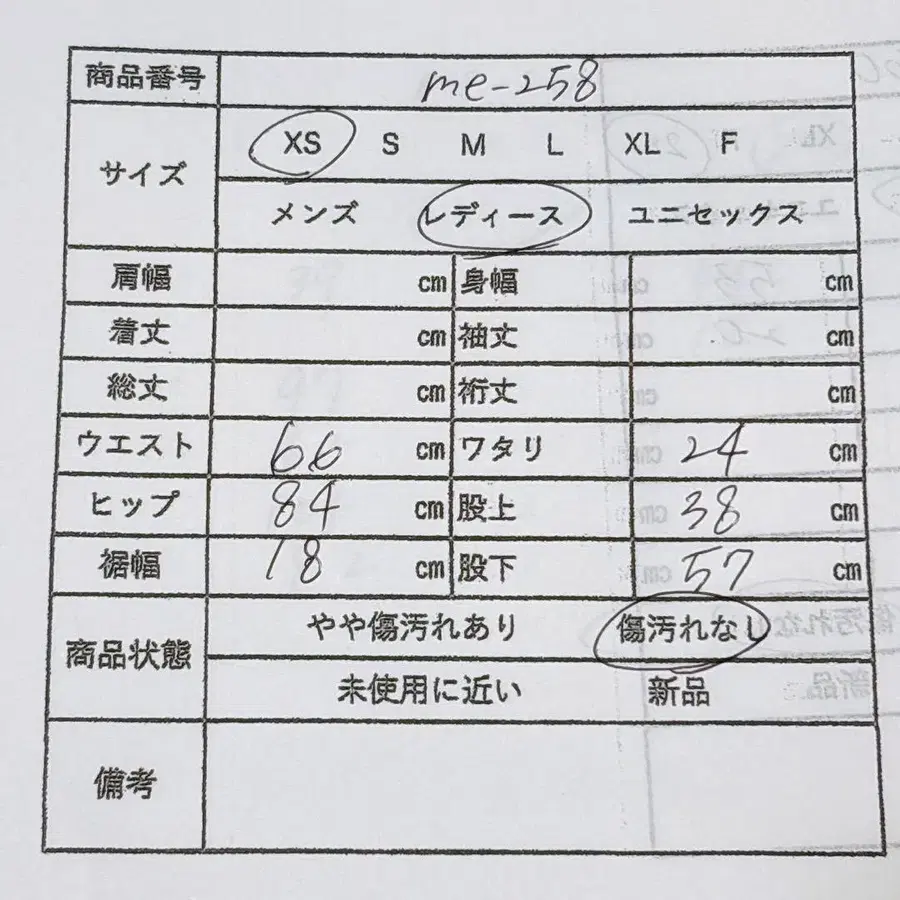 商品番号 me-258
サイズ XS S M L XL F
メンズ レディース ユニセックス
肩幅 cm 身幅 cm
着丈 cm 袖丈 cm
総丈 cm 裄丈 cm
ウエスト 66 cm ワタリ 24 cm
ヒップ 84 cm 股上 38 cm
裾幅 18 cm 股下 57 cm
商品状態 やや傷汚れあり 傷汚れなし
未使用に近い 新品
備考